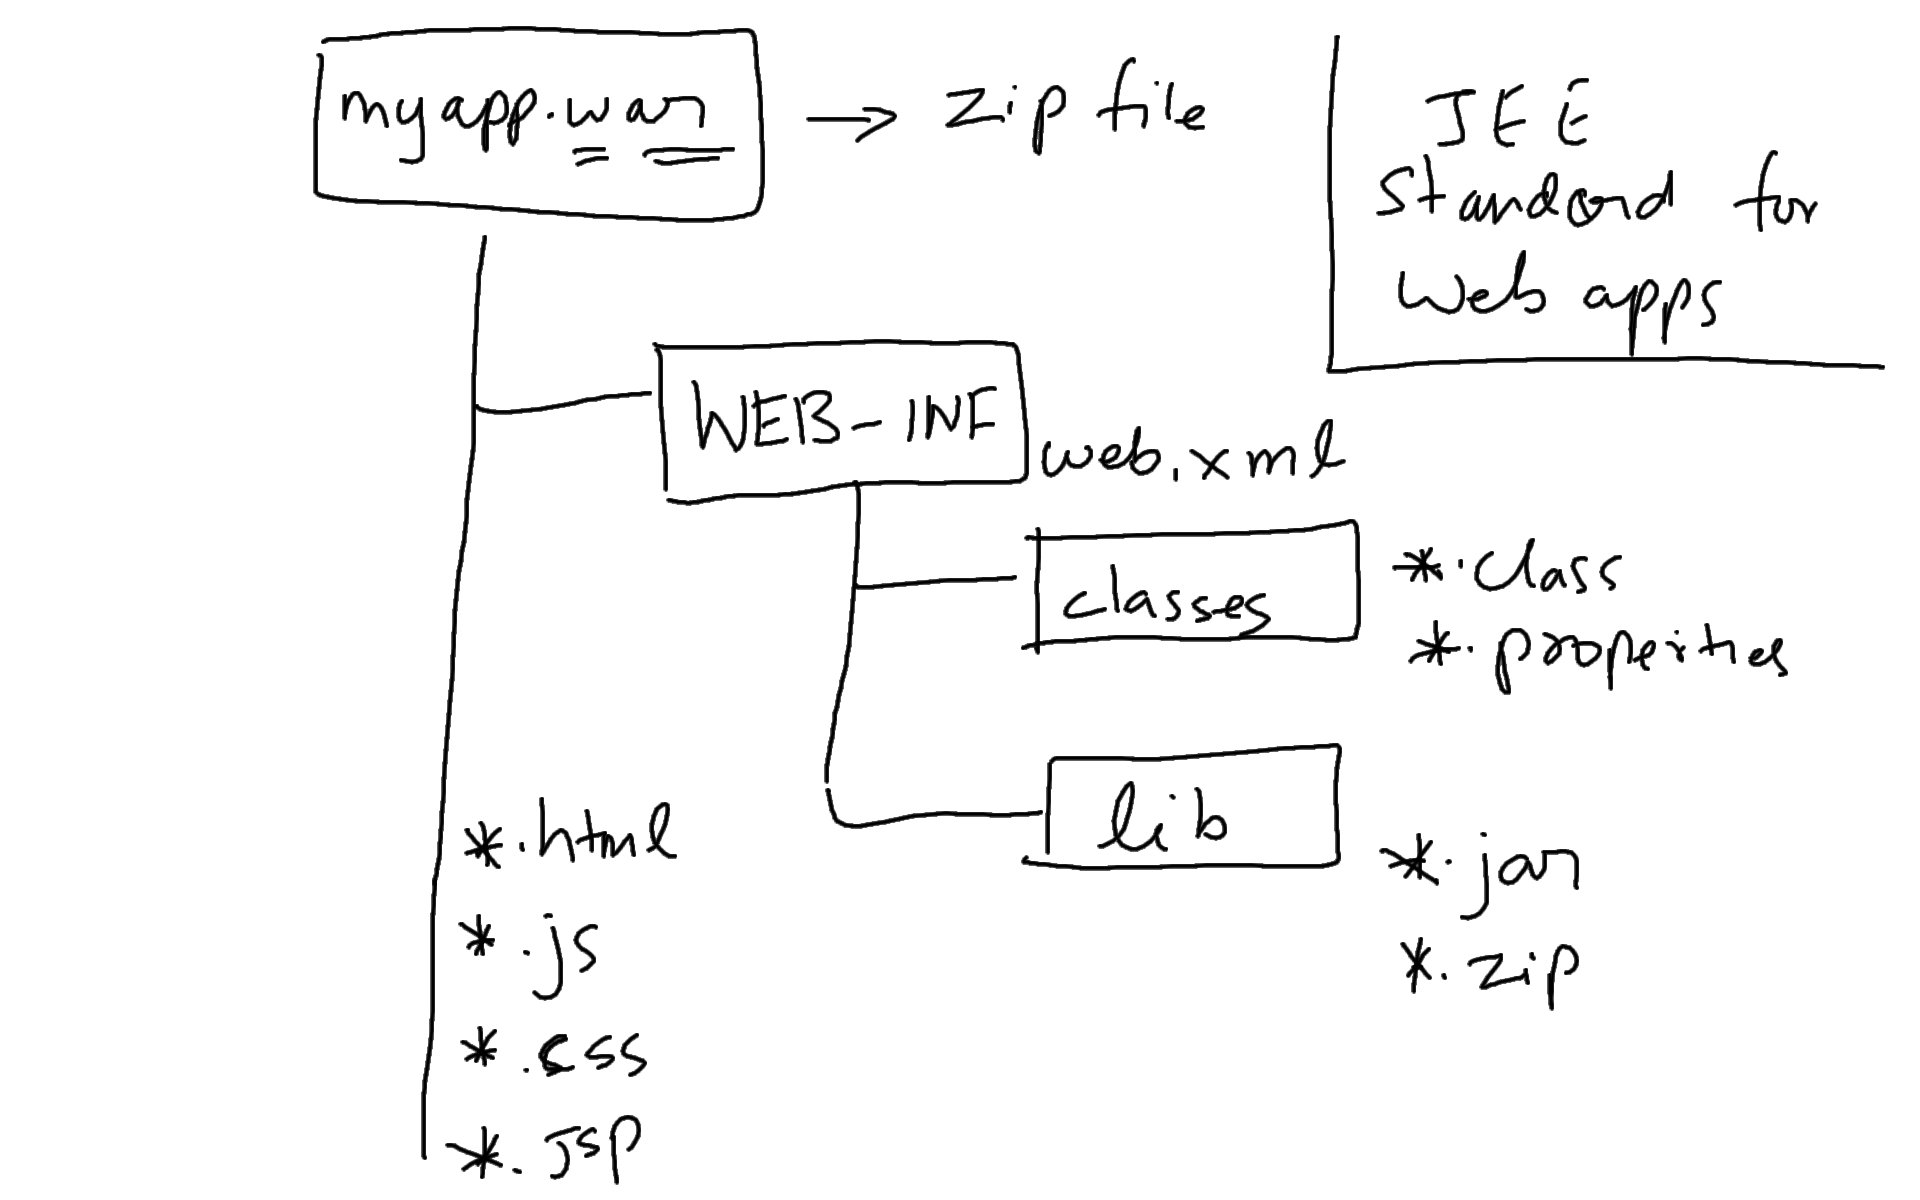 myapp.war → zip file
JEE
Standard for
Web apps
WEB-INF
web.xml
classes
*.class
*.properties
lib
*.jar
*.zip
*.html
*.js
*.css
*.jsp